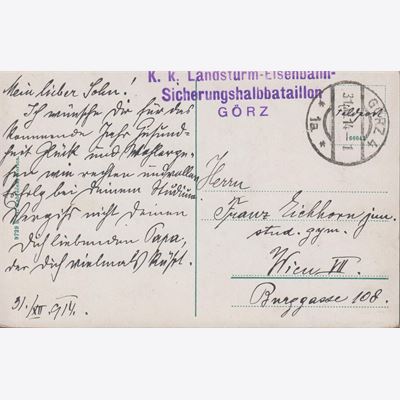 K. k. Landsturm-Eisenbahn-
Sicherungshalbbataillon
GÖRZ
GÖRZ 4
1a
Feldpost
Mein lieber Sohn!
Ich wünsche dir für das
kommende Jahr Gesund-
heit Glück und Wohlerge-
hen
Erfolg bei deinem Studium
Vergiss nicht deinen
Dich liebenden Papa,
der Dich vielmals küsst.
31./XII 914.
Herrn
Franz Eichhorn jun.
stud. gym.
Wien VII.
Burggasse 108.